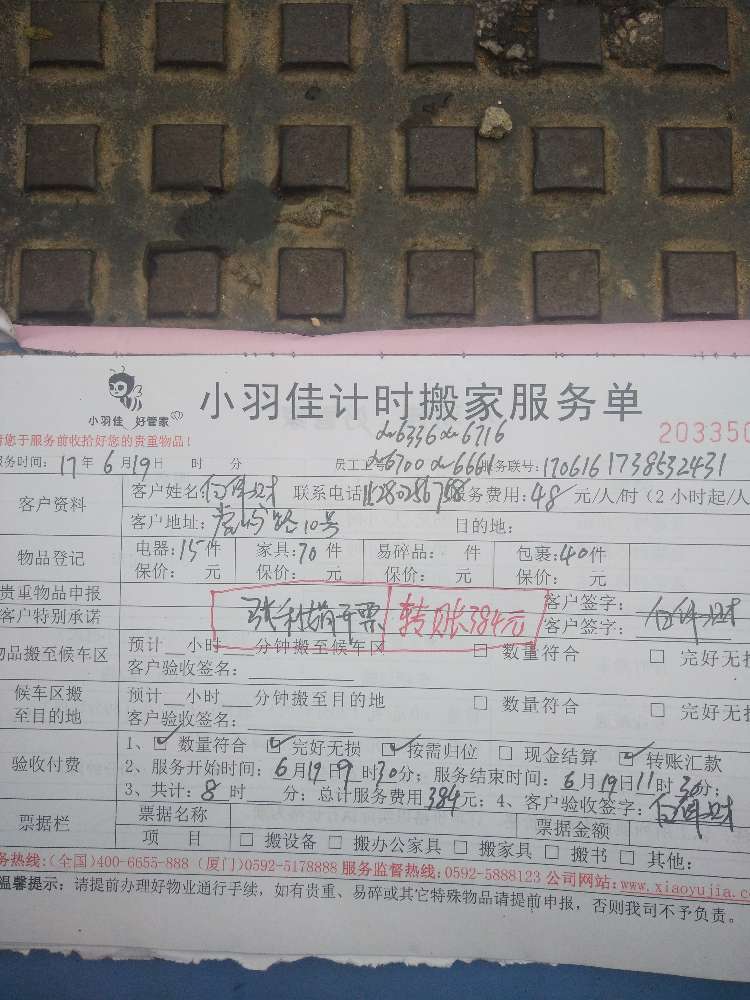 小羽佳 好管家
小羽佳计时搬家服务单
203350
请您于服务前收拾好您的贵重物品!
dw6336 dw6716
服务时间: 17年 6月19日 时 分 员工工号: dw6700 dw6661 服务联号: 1706161738532431
客户资料 客户姓名: 联系电话: 服务费用: 48元/人/时 (2小时起/人
客户地址: 10号 目的地:
物品登记 电器: 15件 家具: 70件 易碎品: 件 包裹: 40件
保价: 元 保价: 元 保价: 元 保价: 元
贵重物品申报 客户签字:
客户特别承诺 开票 转账384元 客户签字:
物品搬至候车区 预计 小时 分钟搬至候车区 □ 数量符合 □ 完好无损
客户验收签名:
候车区搬至目的地 预计 小时 分钟搬至目的地 □ 数量符合 □ 完好无损
客户验收签名:
验收付费 1、☑ 数量符合 ☑ 完好无损 ☑ 按需归位 □ 现金结算 ☑ 转账汇款
2、服务开始时间: 6月19日9时30分; 服务结束时间: 6月19日11时30分;
3、共计: 8时 分; 总计服务费用384元; 4、客户验收签字:
票据栏 票据名称 票据金额
项 目 □ 搬设备 □ 搬办公家具 □ 搬家具 □ 搬书 □ 其他:
服务热线: (全国)400-6655-888 (厦门)0592-5178888 服务监督热线: 0592-5888123 公司网站: www.xiaoyujia.c
温馨提示: 请提前办理好物业通行手续, 如有贵重、易碎或其它特殊物品请提前申报, 否则我司不予负责。